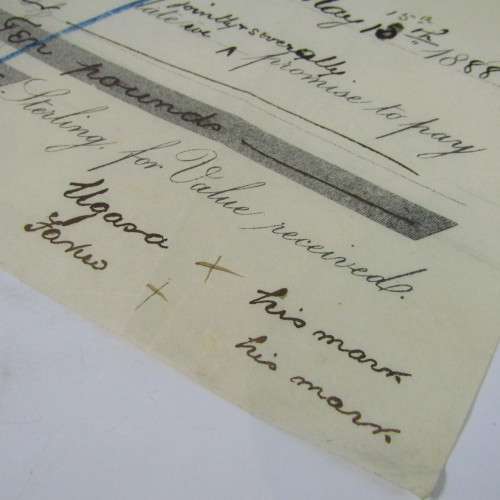 May 15th 1888
jointly & severally
date we ^ promise to pay
Ten pounds
Sterling, for Value received.
Ugasa + his mark
+ his mark